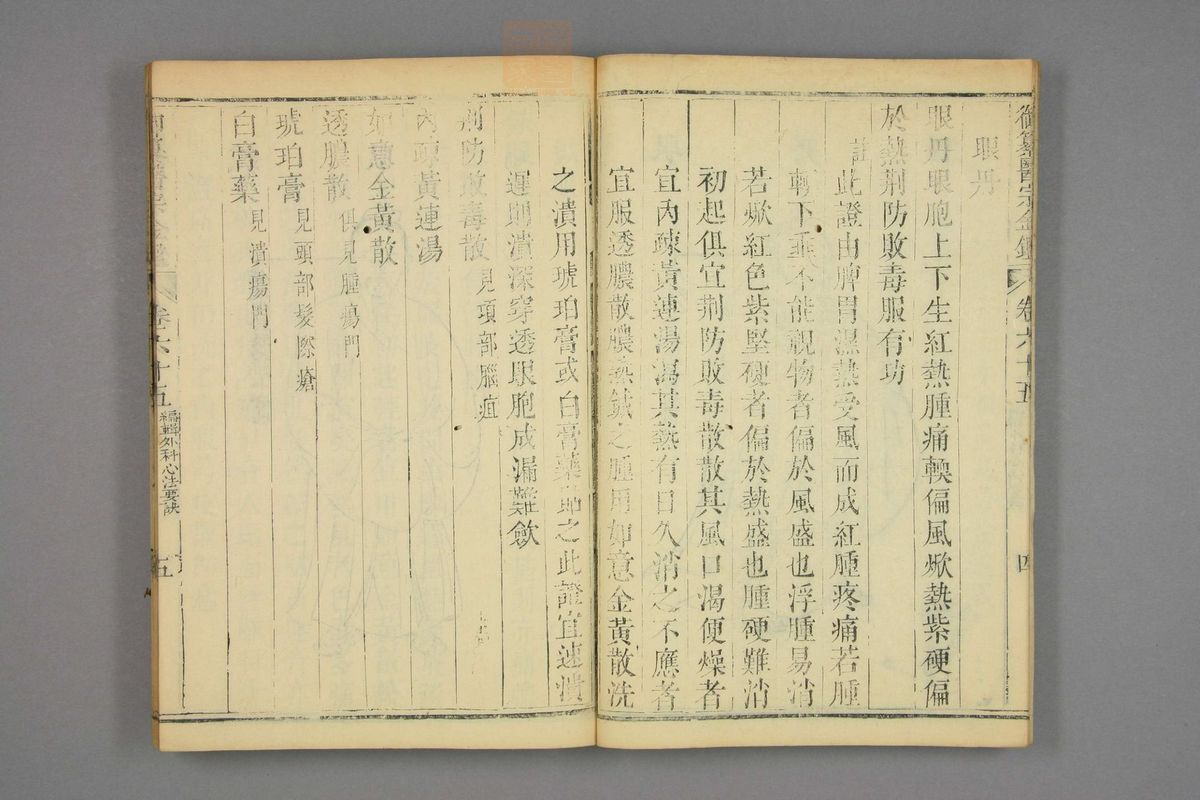 御纂醫宗金鑑 卷六十五 四
眼丹
眼丹眼胞上下生紅熱腫痛輭偏風焮熱紫硬偏
於熱荆防敗毒服有功
註此證由脾胃濕熱受風而成紅腫疼痛若腫
輭下垂不能覩物者偏於風盛也浮腫易消
若焮紅色紫堅硬者偏於熱盛也腫硬難消
初起俱宜荆防敗毒散散其風口渴便燥者
宜內疎黃連湯瀉其熱有日久消之不應者
宜服透膿散膿熟鍼之腫用如意金黃散洗
之潰用琥珀膏或白膏藥貼之此證宜速潰
遲則潰深穿透眼胞成漏難斂
荆防敗毒散見項部腦疽
內疎黃連湯
如意金黃散
透膿散俱見腫瘍門
琥珀膏見頭部髮際瘡
白膏藥見潰瘍門
卷六十五 編輯外科心法要訣 五